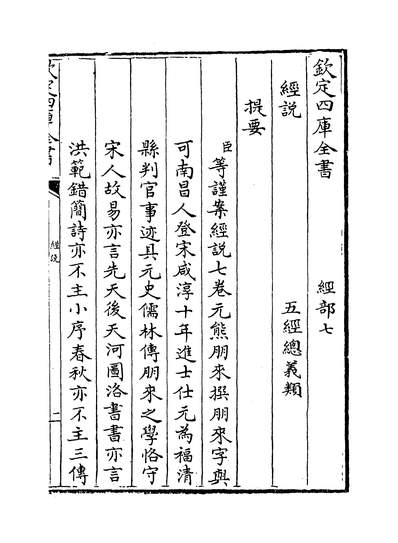 欽定四庫全書　　　經部七
經說　　　　　　　五經總義類
提要
臣等謹案經說七卷元熊朋來撰朋來字與
可南昌人登宋咸淳十年進士仕元為福清
縣判官事迹具元史儒林傳朋來之學恪守
宋人故易亦言先天後天河圖洛書書亦言
洪範錯簡詩亦不主小序春秋亦不主三傳
欽定四庫全書
經說